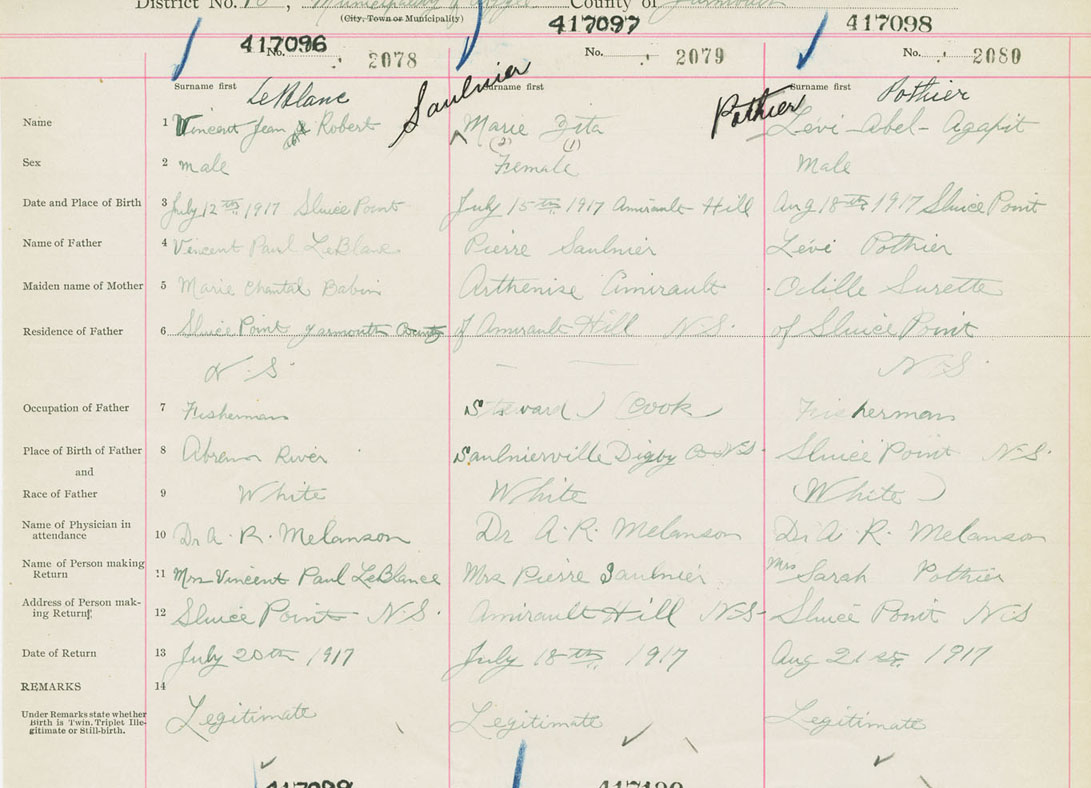 District No. 18, Municipality of Argyle County of Yarmouth
(City, Town or Municipality)
417096 417097 417098
No. 2078 No. 2079 No. 2080
Surname first Surname first Surname first
LeBlanc Saulnier Pothier Pothier
Name 1 Vincent Jean Robert Marie Zita Lévi-Abel-Agapit
(2) (1)
Sex 2 male Female Male
Date and Place of Birth 3 July 12th 1917 Sluice Point July 15th 1917 Amirault Hill Aug 18th 1917 Sluice Point
Name of Father 4 Vincent Paul LeBlanc Pierre Saulnier Lévi Pothier
Maiden name of Mother 5 Marie Chantal Babin Arthenise Amirault Odille Surette
Residence of Father 6 Sluice Point Yarmouth County of Amirault Hill N.S. of Sluice Point
N.S. N.S.
Occupation of Father 7 Fisherman Steward) (Cook) Fisherman
Place of Birth of Father 8 Abram River Saulnierville Digby Co N.S. Sluice Point N.S.
and
Race of Father 9 White White (White)
Name of Physician in attendance 10 Dr A. R. Melanson Dr A. R. Melanson Dr A. R. Melanson
Name of Person making Return 11 Mrs Vincent Paul LeBlance Mrs Pierre Saulnier Mrs Sarah Pothier
Address of Person mak-ing Return 12 Sluice Point N.S. Amirault Hill N.S. Sluice Point N.S
Date of Return 13 July 20th 1917 July 18th, 1917 Aug 21st, 1917
REMARKS 14
Under Remarks state whether Birth is Twin, Triplet Ille-gitimate or Still-birth. Legitimate Legitimate Legitimate